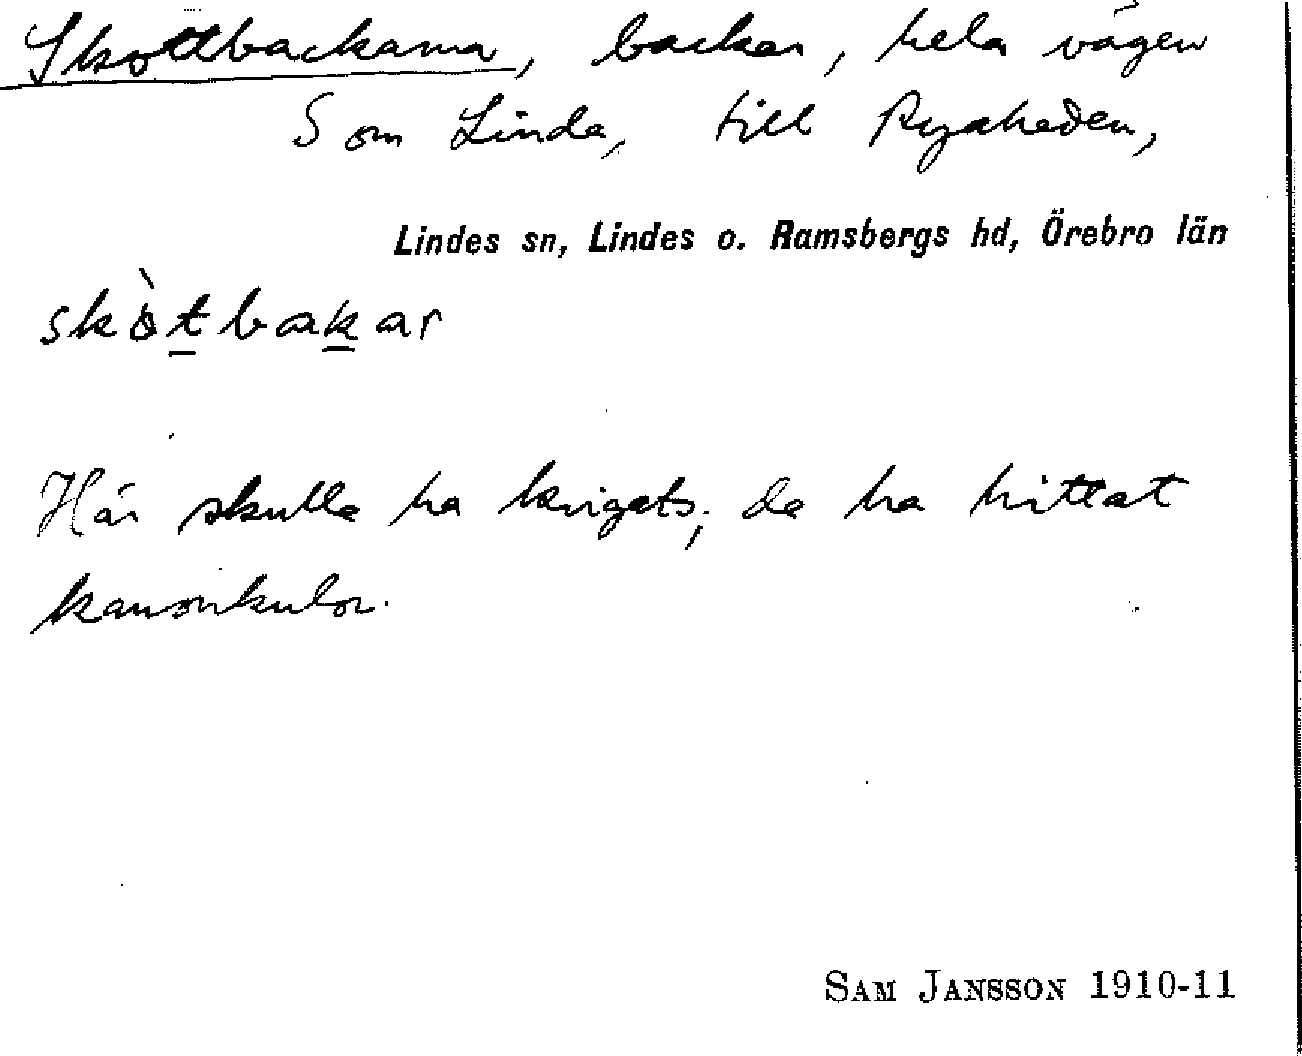 Skottbackarna, backar, hela vägen
S om Linde, till Ryssheden,
Lindes sn, Lindes o. Ramsbergs hd, Örebro län
skòtbakar
Här skulle ha krigats; de ha hittat
kanonkulor.
SAM JANSSON 1910-11